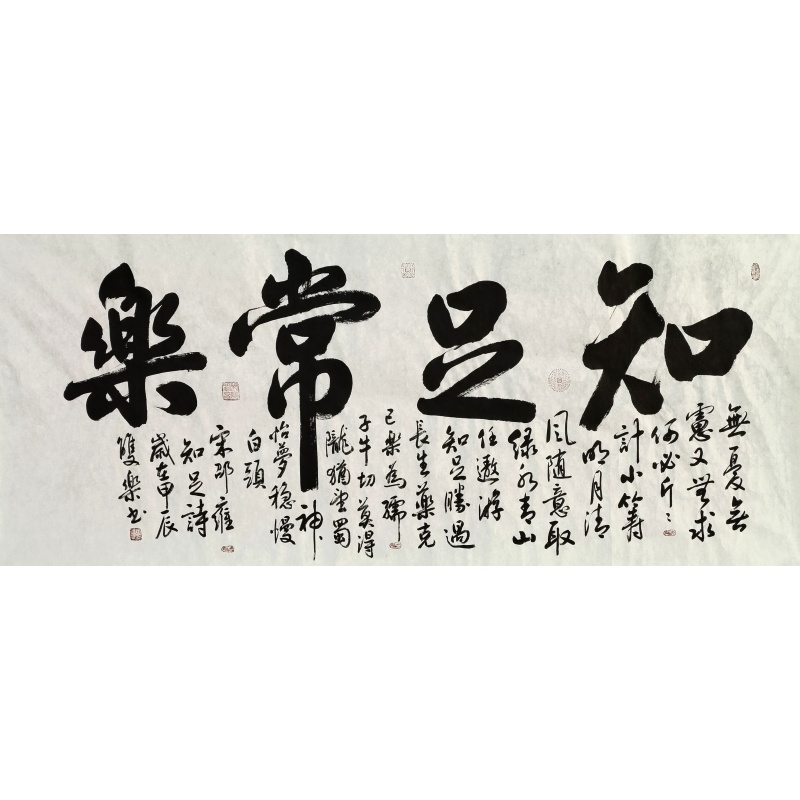 知足常樂
無憂無
慮又無求
何必斤々
計小籌
明月清
風隨意取
緑水青山
任遨游
知足勝過
長生藥克
己樂為孺
子牛切莫得
隴猶望蜀
神
怡夢穏慢
白頭
宋邵雍
知足詩
歲在甲辰
雙樂书